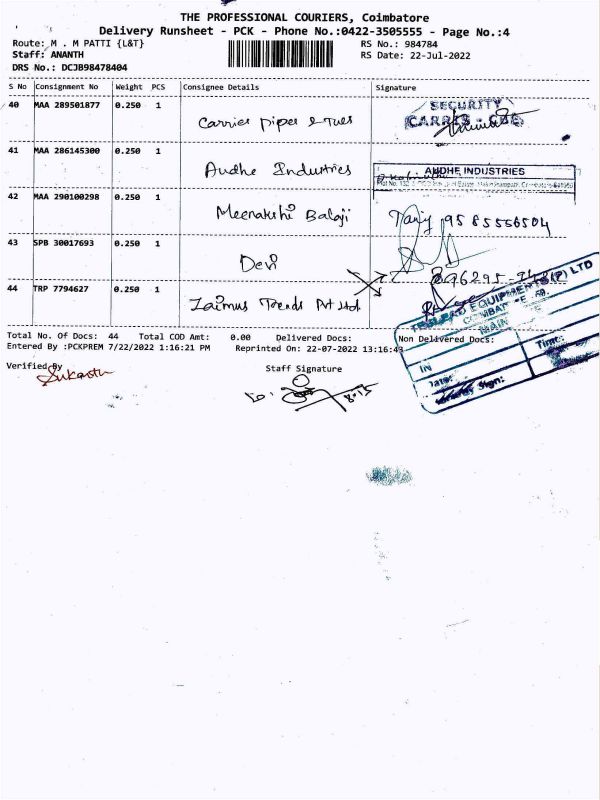 THE PROFESSIONAL COURIERS, Coimbatore
Delivery Runsheet - PCK - Phone No.:0422-3505555 - Page No.:4
Route: M . M PATTI {L&T} RS No.: 984784
Staff: ANANTH RS Date: 22-Jul-2022
DRS No.: DCJB98478404
S No Consignment No Weight PCS Consignee Details Signature
40 MAA 289501877 0.250 1 Carrier pipes & Tues SECURITY
41 MAA 286145300 0.250 1 Audhe Industries AUDHE INDUSTRIES
42 MAA 290100298 0.250 1 Meenakshi Balaji 9585556504
43 SPB 30017693 0.250 1 Devi
44 TRP 7794627 0.250 1 Trends Pvt Ltd
EQUIPMENTS(P) LTD
MAIN
IN Time:
Date:
Sign:
Total No. Of Docs: 44 Total COD Amt: 0.00 Delivered Docs: Non Delivered Docs:
Entered By :PCKPREM 7/22/2022 1:16:21 PM Reprinted On: 22-07-2022 13:16:43
Verified By Staff Signature